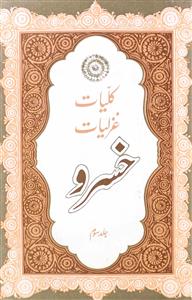 کلیات
غزلیات
خسرو
جلد سوم